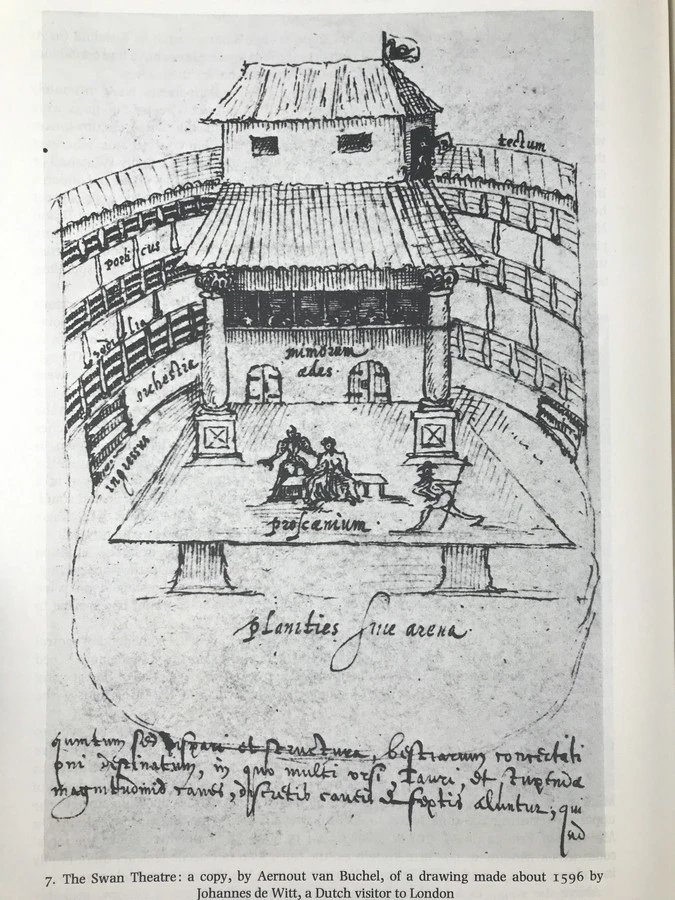 tectum
porticus
sedilia
orchestra
mimorum
ædes
ingressus
proscænium
planities siue arena
quintum sed dispari et structura, bestiarum concertati
oni destinatum, in quo multi vrsi, Tauri, et stupendæ
magnitudinis canes, discretis caueis & septis aluntur, qui
ad
7. The Swan Theatre: a copy, by Aernout van Buchel, of a drawing made about 1596 by
Johannes de Witt, a Dutch visitor to London